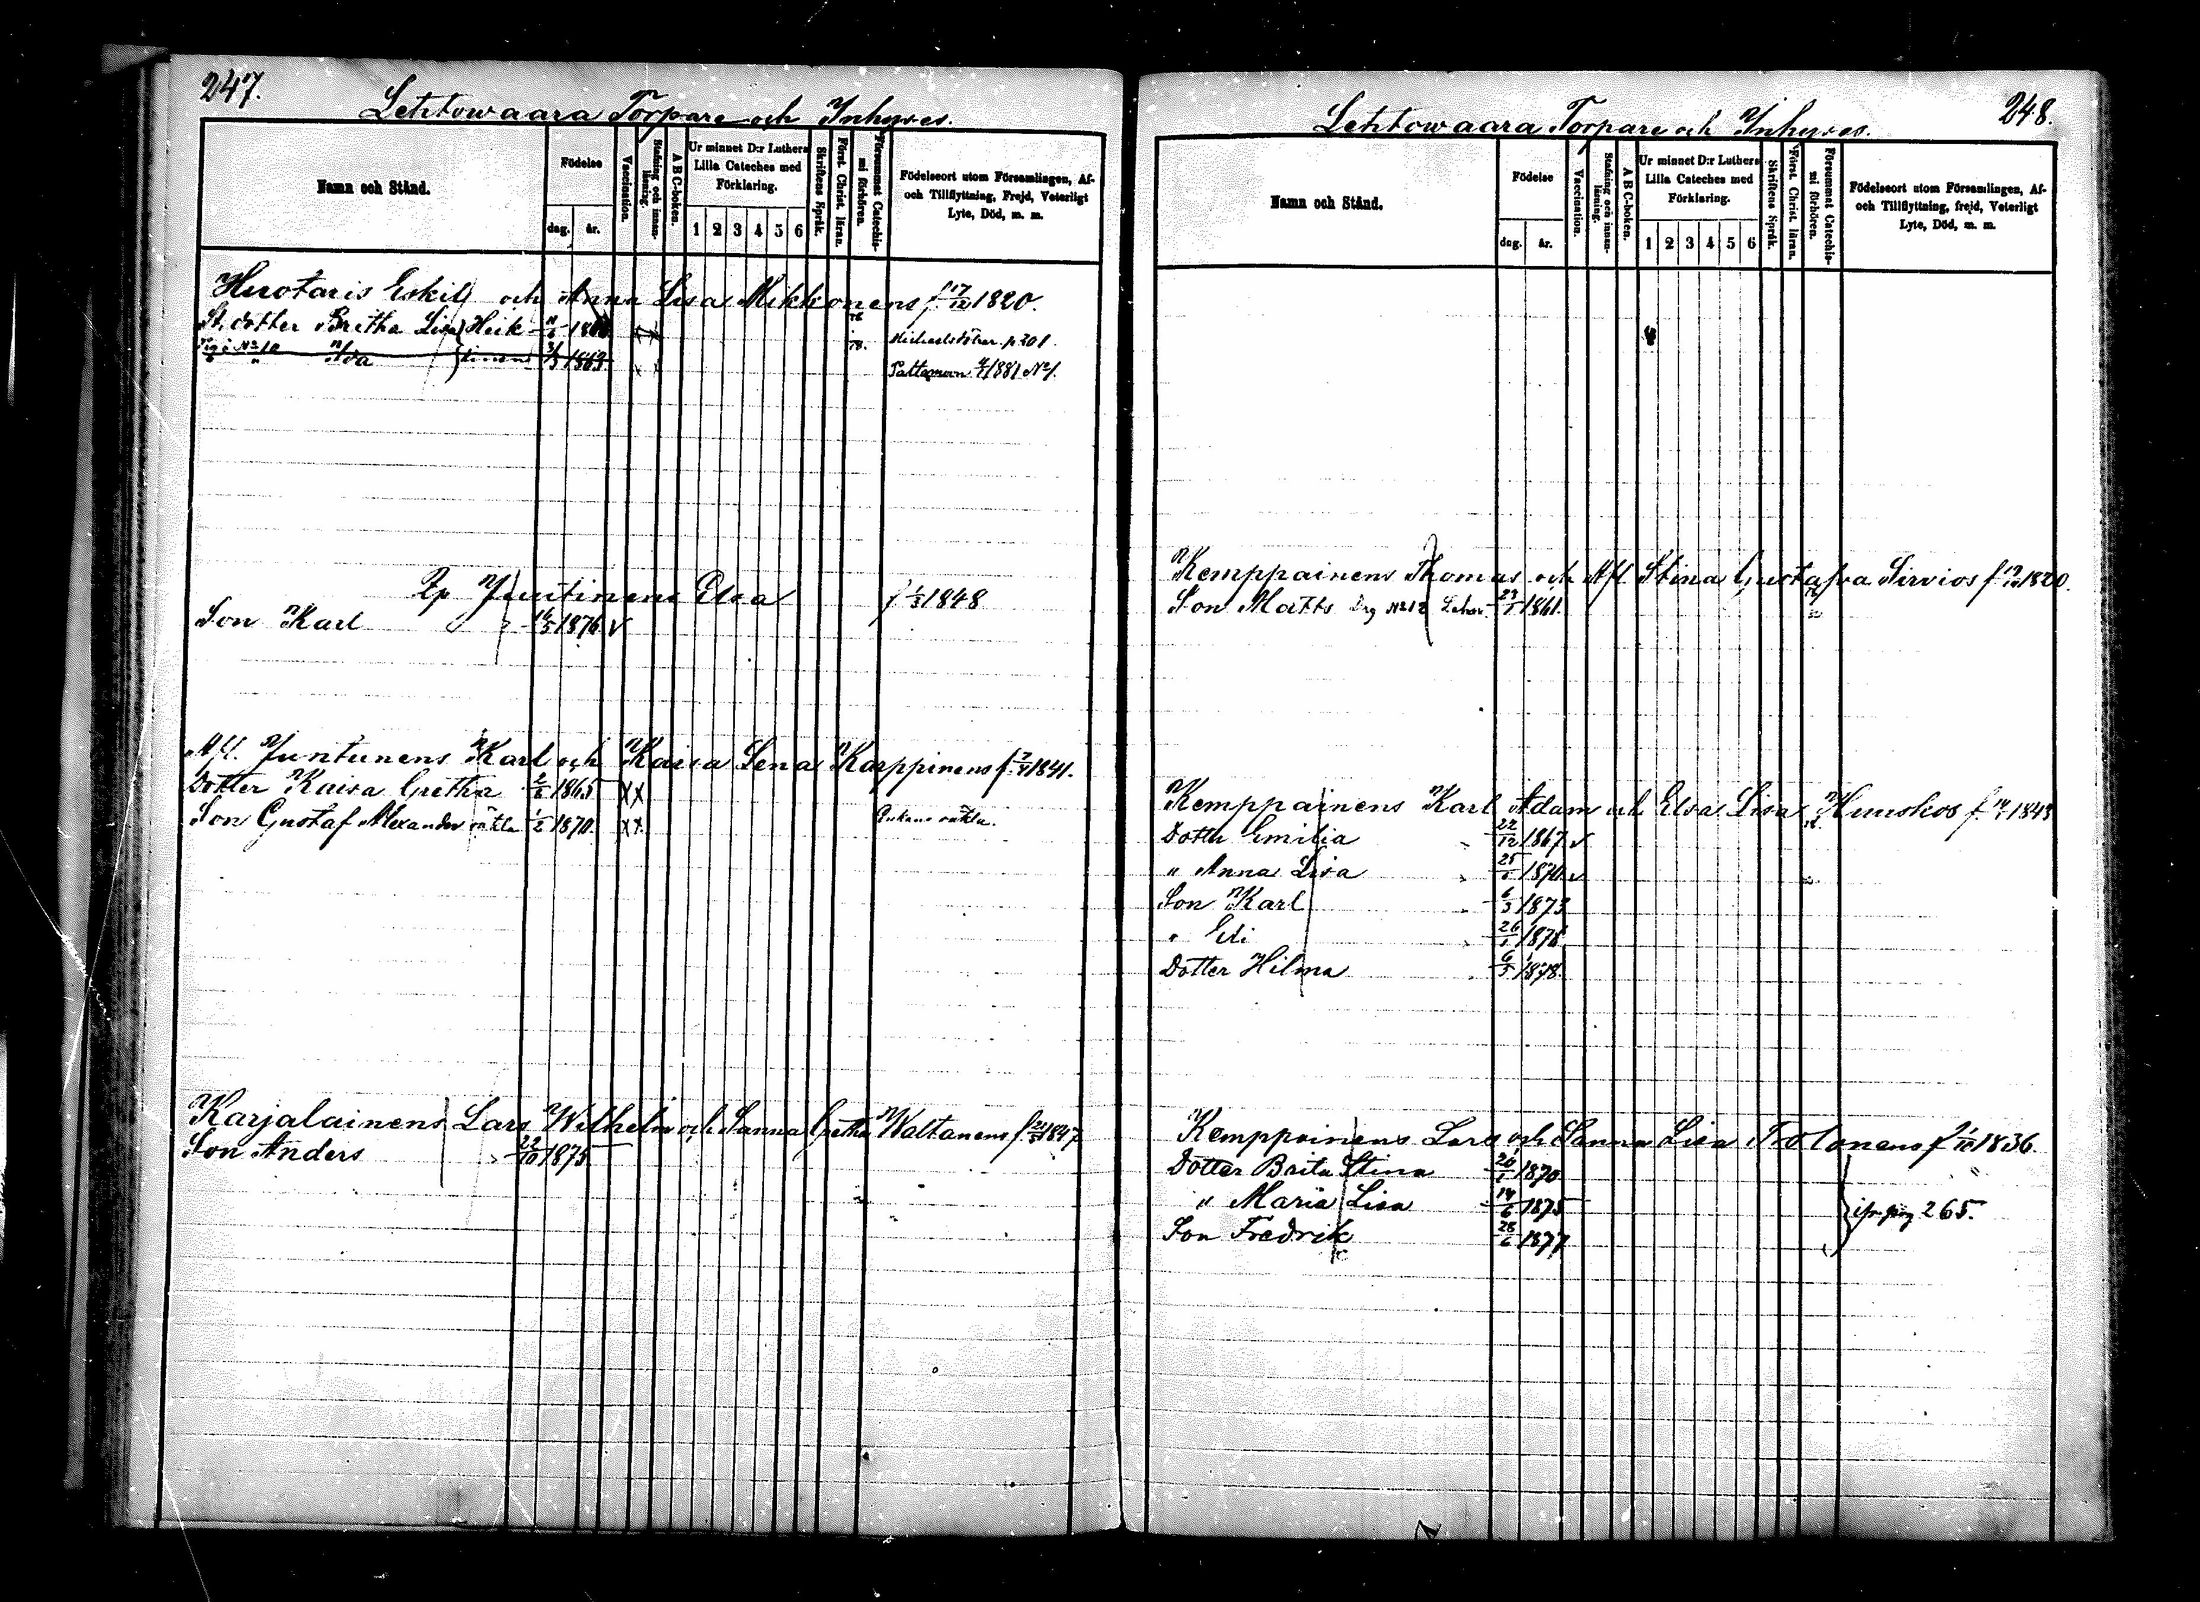 247.
Lehtowaara Torpare och Inhyses.
Namn och Stånd.
Födelse
dag.
år.
Vaccination.
Stafning och innanläsning.
A B C-boken.
Ur minnet D:r Luthers Lilla Cateches med Förklaring.
1 2 3 4 5 6
Skriftens Språk.
Först. Christ. läran.
Försummat Catechismi förhören.
Födelseort utom Församlingen, Af- och Tillflyttning, Frejd, Veterligt Lyte, Död, m. m.
Huotaris Eskil och Anna Lisa Mikkonens f. 17/12 1820.
St. dotter Bretha Lisa Heik-
" Ida 1863
1881 No 1.
Juutinens Elsa f 1848
Son Karl 16/5 1876
Juntunens Karl och Kaisa Lena Karppinens f. 1841.
Dotter Kaisa Gretha 1865 xx
Son Gustaf Alexander 1870. xx
Karjalainens Lars Wilhelm och Sanna Gretha Waltanens f. 1847
Son Anders 22/10 1875
248.
Lehtowaara Torpare och Inhyses.
Namn och Stånd.
Födelse
dag.
år.
Vaccination.
Stafning och innanläsning.
A B C-boken.
Ur minnet D:r Luthers Lilla Cateches med Förklaring.
1 2 3 4 5 6
Skriftens Språk.
Först. Christ. läran.
Försummat Catechismi förhören.
Födelseort utom Församlingen, Af- och Tillflyttning, frejd, Veterligt Lyte, Död, m. m.
Kemppainens Thomas och Stina Gustafva Sirviös f 1820.
Son Matts 1861.
Kemppainens Karl Adam och Elsa Lisa Huuskos f. 1843
Dotter Emilia 22/12 1867
" Anna Lisa 1870
Son Karl 6/3 1873
" Eli 1875
Dotter Hilma 6/5 1878.
Kemppainens Lars och Sanna Lisa Tolonens f 1836.
Dotter Brita Stina 1870
" Maria Lisa 14/6 1875
Son Fredrik 1877
265.